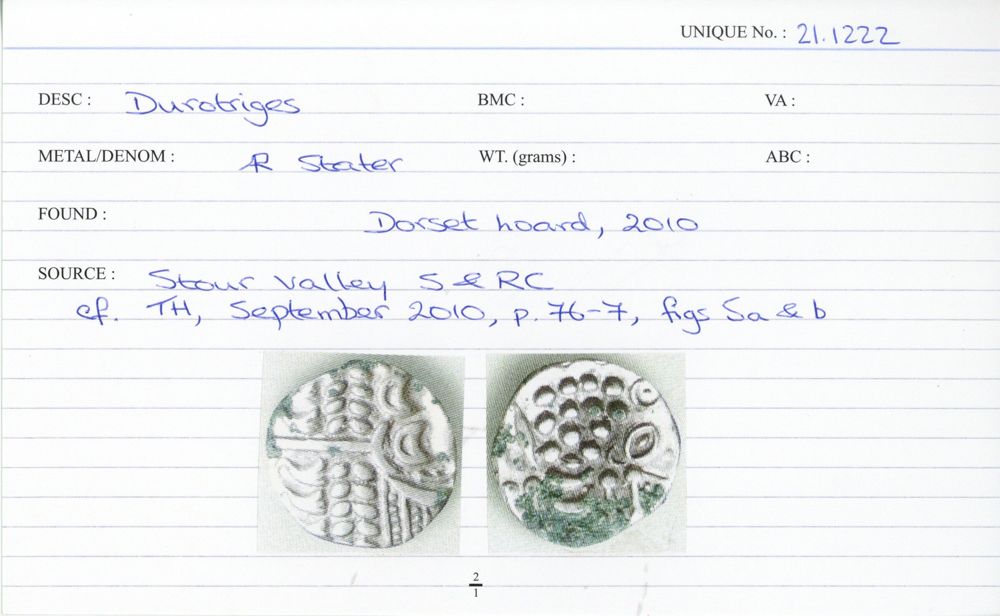 UNIQUE No. : 21.1222
DESC : Durotriges BMC : VA :
METAL/DENOM : AR Stater WT. (grams) : ABC :
FOUND : Dorset hoard, 2010
SOURCE : Stour Valley S & RC
cf. TH, September 2010, p. 76-7, figs 5a & b
2
1